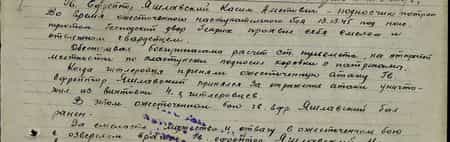 Тов. Ефрейтор Яшлавский Касим Аметович - подносчик патрон
Во время ожесточенного наступательного боя 13.2.45 под
пунктом Господский двор проявил себя смелым и
отважным гвардейцем.
Обеспечивал боеприпасами расчет ст. пулемета, на открытой
местности по пластунски подносил коробки с патронами.
Когда гитлеровцы приняли ожесточенную атаку Тов.
ефрейтор Яшлавский принялся за отражение атаки уничто-
жил из винтовки 4х гитлеровцев.
В этом ожесточенном бою гв. ефр. Яшлавский был
ранен.
За смелость, мужество и отвагу в ожесточенном бою
с озверелым врагом гв. ефрейтор Яшлавский